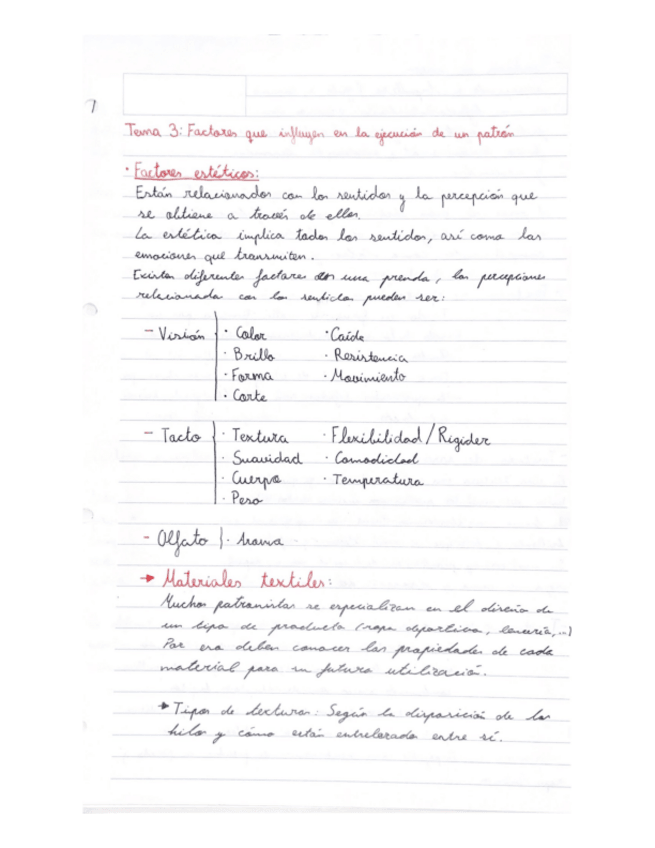 Tema 3: Factores que influyen en la ejecución de un patrón
· Factores estéticos:
Están relacionados con los sentidos y la percepción que
se obtiene a través de ellos.
La estética implica todos los sentidos, así como las
emociones que transmiten.
Existen diferentes factores en una prenda, las percepciones
relacionada con los sentidos pueden ser:
- Visión · Color · Caída
· Brillo · Resistencia
· Forma · Movimiento
· Corte
- Tacto · Textura · Flexibilidad/Rigidez
· Suavidad · Comodidad
· Cuerpo · Temperatura
· Peso
- Olfato · Aroma
→ Materiales textiles:
Muchos patronistas se especializan en el diseño de
un tipo de producto (ropa deportiva, lencería,...)
Por eso deben conocer las propiedades de cada
material para su futura utilización.
→ Tipos de texturas: Según la disposición de los
hilos y cómo están entrelazados entre sí.